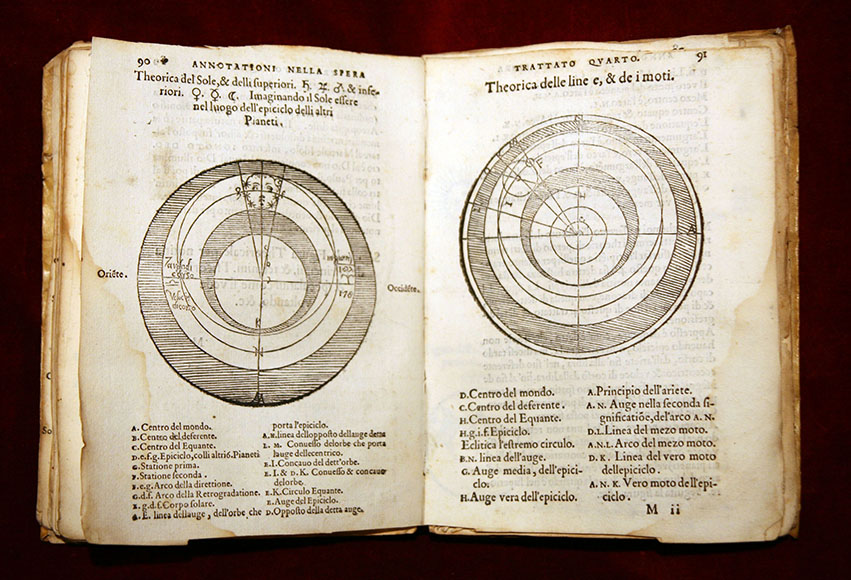 90
ANNOTATIONI NELLA SPERA
Theorica del Sole, & delli superiori. ♄ ♃ ♂ & infe-
riori. ♀ ☿ ☾. Imaginando il Sole essere
nel luogo dell'epiciclo delli altri
Pianeti.
Oriẽte.
Occidẽte.
A. Centro del mondo.
B. Centro del deferente.
C. Centro del Equante.
D.e.f.g. Epiciclo, colli altri 6. Pianeti
G. Statione prima.
F. Statione seconda.
E.e.g. Arco della direttione.
G.d.f. Arco della Retrogradatione.
E.g.d.f. Corpo solare.
A.E. linea dellauge, dell'orbe che
porta l'epiciclo.
A.N. linea dell'opposto dellauge detta
L.M. Conuesso delorbe che porta
lauge delleccentrico.
E.I. Concauo del dett'orbe.
E.I. & D.K. Conuesso & concauo
delorbe.
E.K. Circulo Equante.
E. Auge del Epiciclo.
D. Opposto della detta auge.
TRATTATO QVARTO.
91
Theorica delle line e, & de i moti.
D. Centro del mondo.
C. Centro del deferente.
H. Centro del Equante.
H.g.i.f. Epiciclo.
Eclitica l'estremo circulo.
B.N. linea dell'auge.
G. Auge media, dell'epici-
clo.
H. Auge vera dell'epiciclo.
A. Principio dell'ariete.
A. N. Auge nella seconda si-
gnificatiõe, del'arco A. N.
D.L. Linea del mezo moto.
A.N.L. Arco del mezo moto.
D. K. Linea del vero moto
dellepiciclo.
A. N. K. Vero moto dell'epi-
ciclo.
M ii